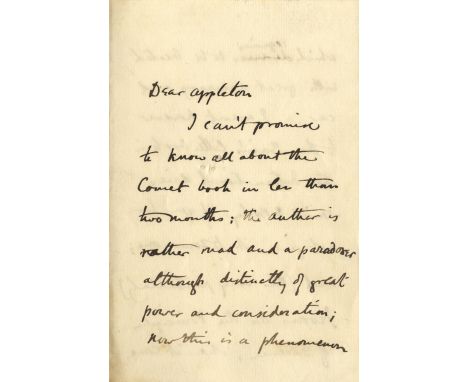 Dear Appleton
I can't promise
to know all about the
Comet book in less than
two months; the author is
rather mad and a paradoxer
although distinctly of great
power and consideration;
now this is a phenomenon